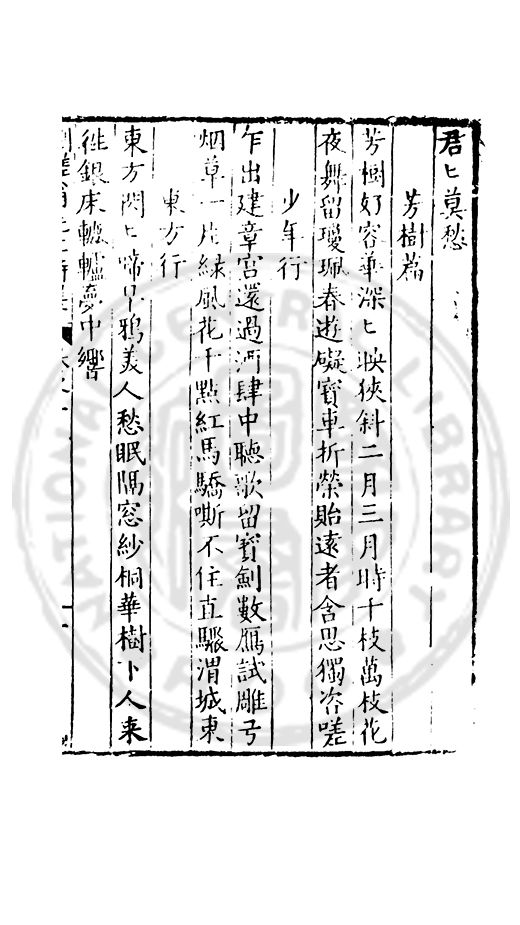 君匕莫愁
芳樹篇
芳樹好容華深匕映狹斜二月三月時千枝萬枝花
夜舞留瓊珮春遊礙寶車折榮貽遠者含思獨咨嗟
少年行
乍出建章宮還過河肆中聽歌留寶劍數鴈試雕弓
烟草一片綠風花千點紅馬驕嘶不住直驟渭城東
東方行
東方閃匕啼鴉美人愁眠隔窓紗桐華樹卜人来
徃銀床轆轤夢中響